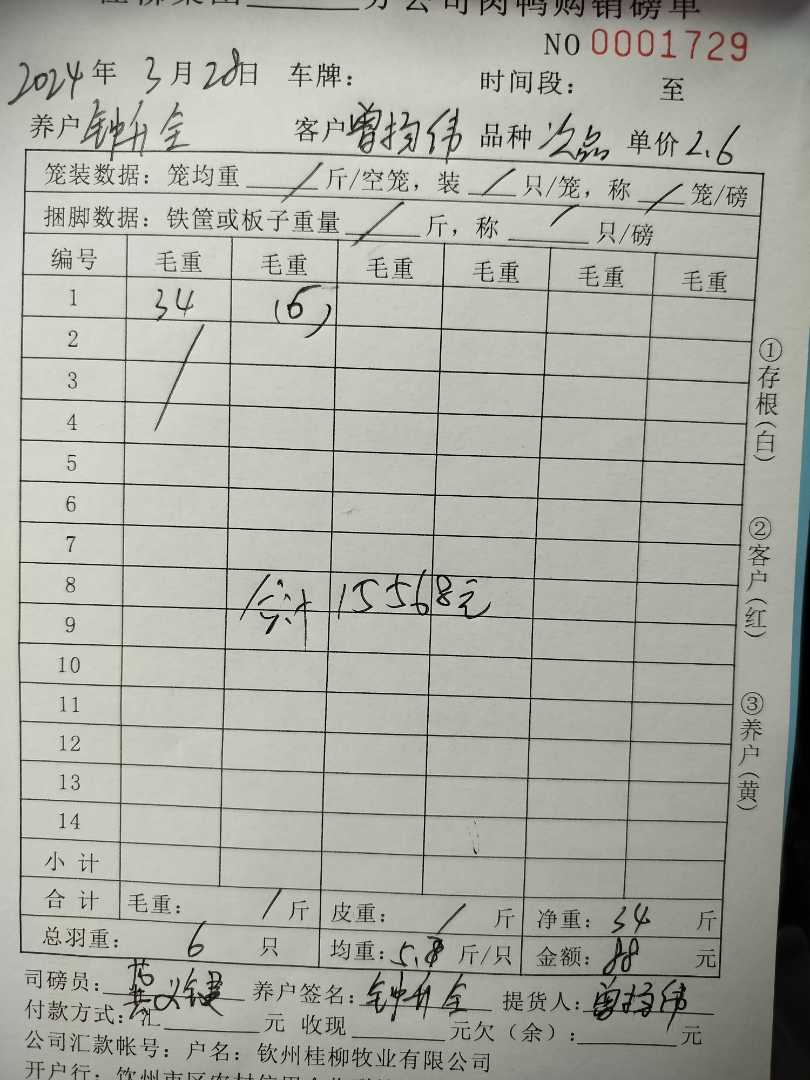 分公司肉鸭购销磅单
NO 0001729
2024年3月28日 车牌: 时间段: 至
养户 钟升全 客户 曾扬伟 品种 次品 单价 2.6
笼装数据: 笼均重 / 斤/空笼, 装 / 只/笼, 称 / 笼/磅
捆脚数据: 铁筐或板子重量 / 斤, 称 / 只/磅
编号 毛重 毛重 毛重 毛重 毛重 毛重
1 34 (6)
2
3
4
5
6
7
8
合计 15568元
9
10
11
12
13
14
小计
合计 毛重: / 斤 皮重: / 斤 净重: 34 斤
总羽重: 6 只 均重: 5.8 斤/只 金额: 88 元
司磅员: 养户签名: 钟升全 提货人: 曾扬伟
付款方式: 汇 元 收现 元欠(余): 元
公司汇款帐号: 户名: 钦州桂柳牧业有限公司
开户行:
①存根(白)
②客户(红)
③养户(黄)